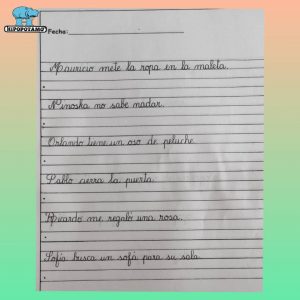 HIPOPOTAMO
Fecha:
Mauricio mete la ropa en la maleta.
Ninoska no sabe nadar.
Orlando tiene un oso de peluche
Pablo cierra la puerta.
Ricardo me regaló una rosa.
Sofía busca un sofá para su sala.